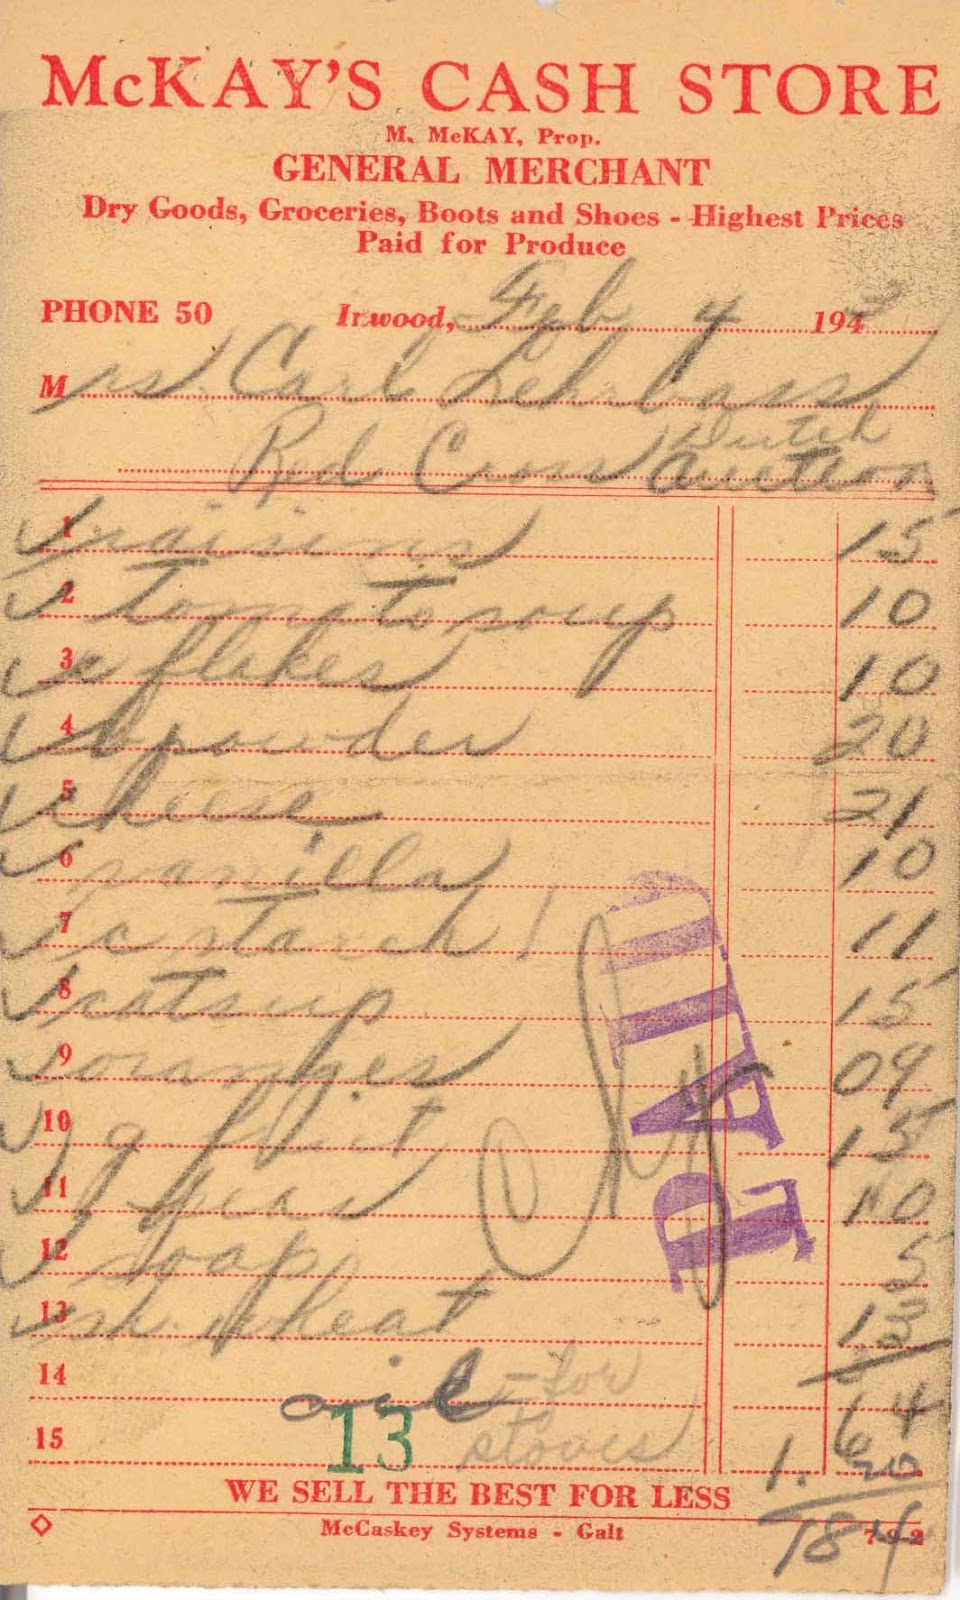 McKAY'S CASH STORE
M. McKAY, Prop.
GENERAL MERCHANT
Dry Goods, Groceries, Boots and Shoes - Highest Prices
Paid for Produce
PHONE 50 Inwood, Feb 4 194
Mrs Carl Lehrbass
Red Cross Dutch Auction
1 raisins 15
2 tomato soup 10
3 c flakes 10
4 b powder 20
5 cheese 21
6 vanilla 10
7 c starch 11
8 catsup 15
9 oranges 09
10 g fruit 15
11 peas 10
12 soap 5
13 sh. wheat 13
14 oil - for 1.64
15 13 stoves 20
WE SELL THE BEST FOR LESS
McCaskey Systems - Galt 7-9-2
184
PAID